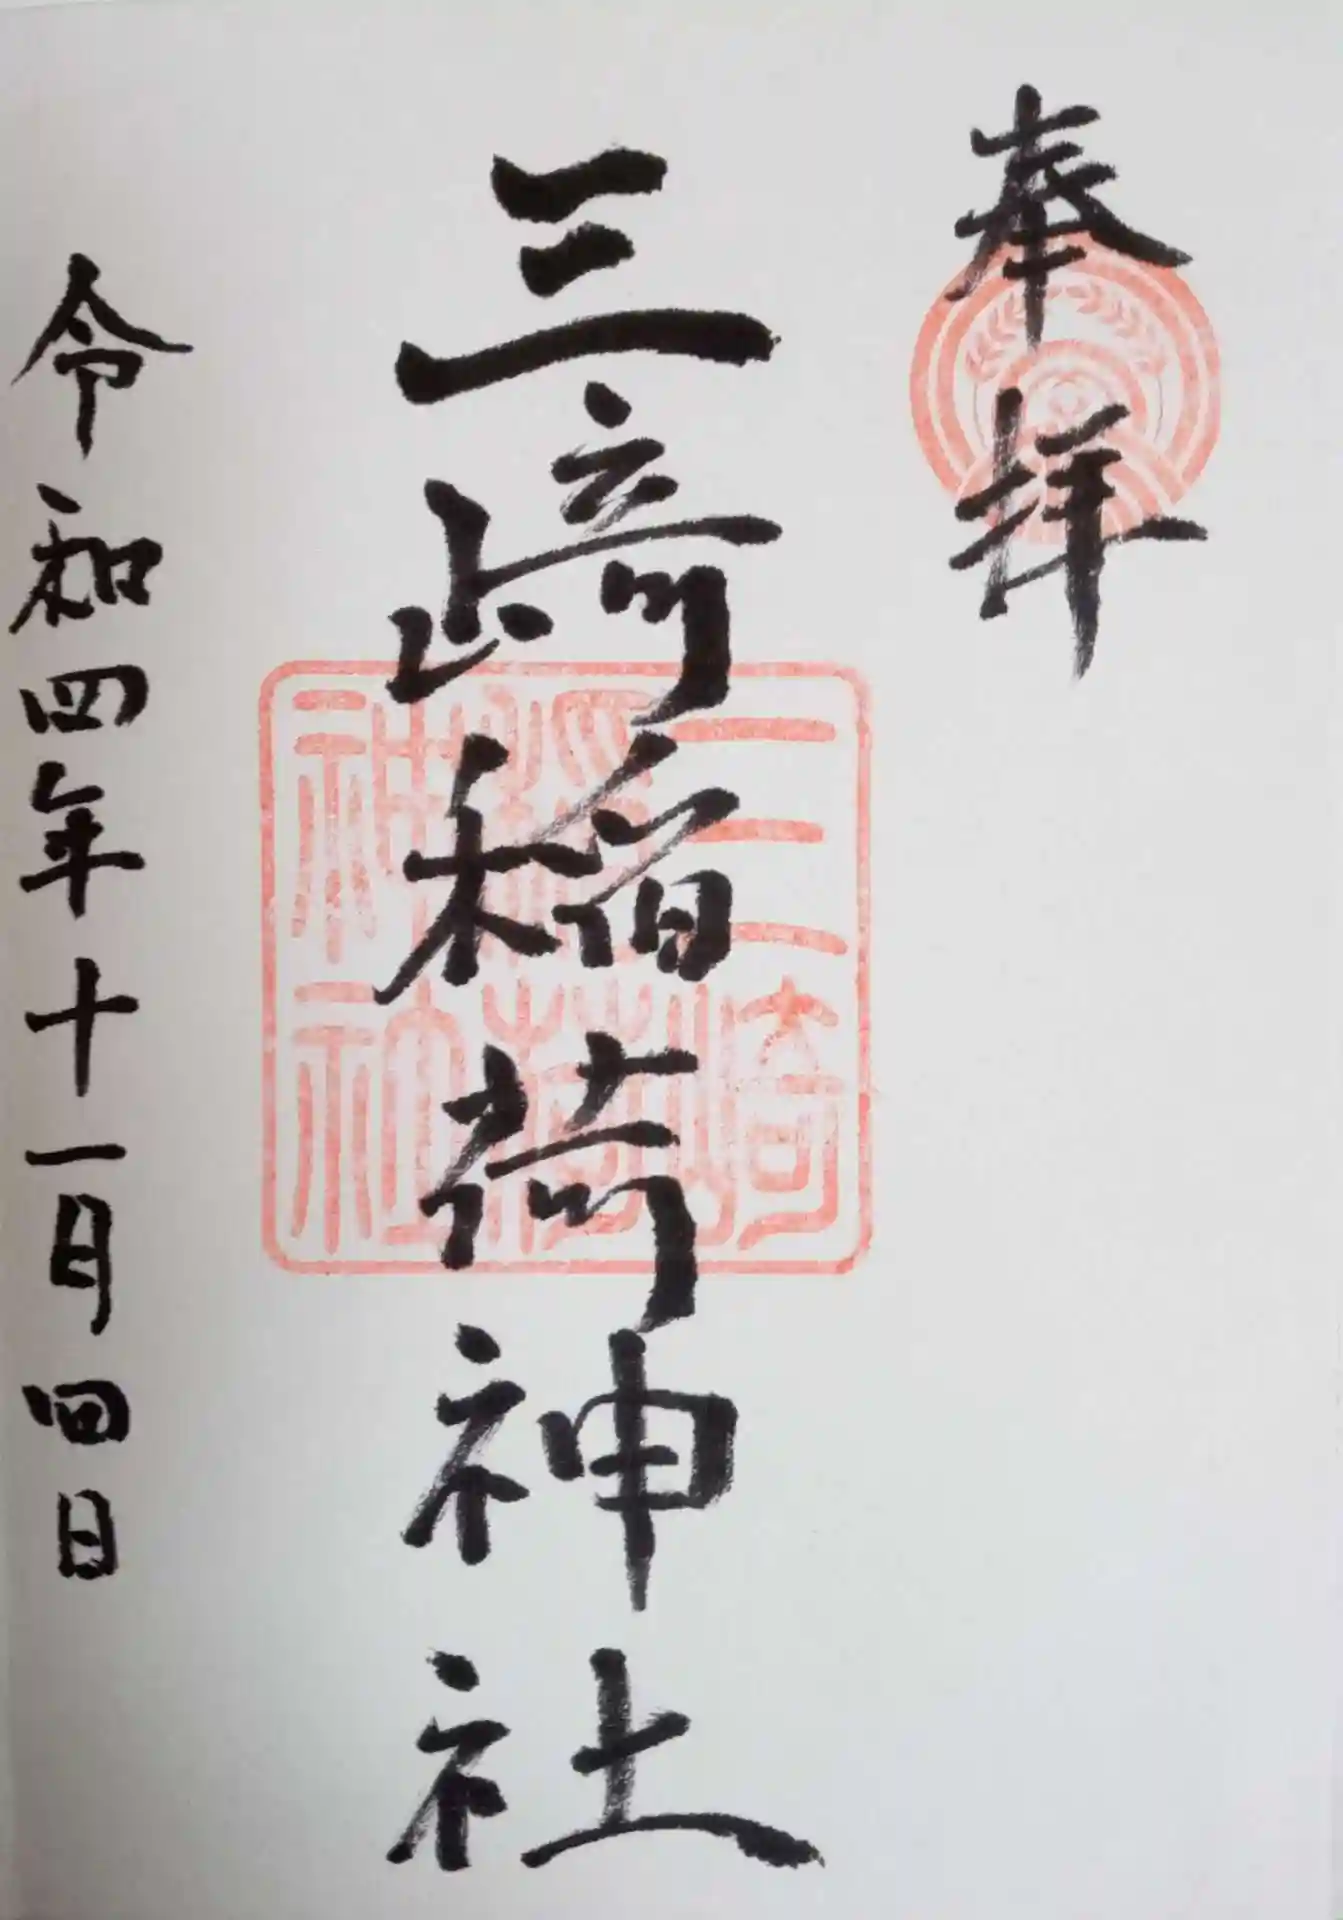 奉拝
三崎稲荷神社
三崎
稲荷
神社
令和四年十一月四日